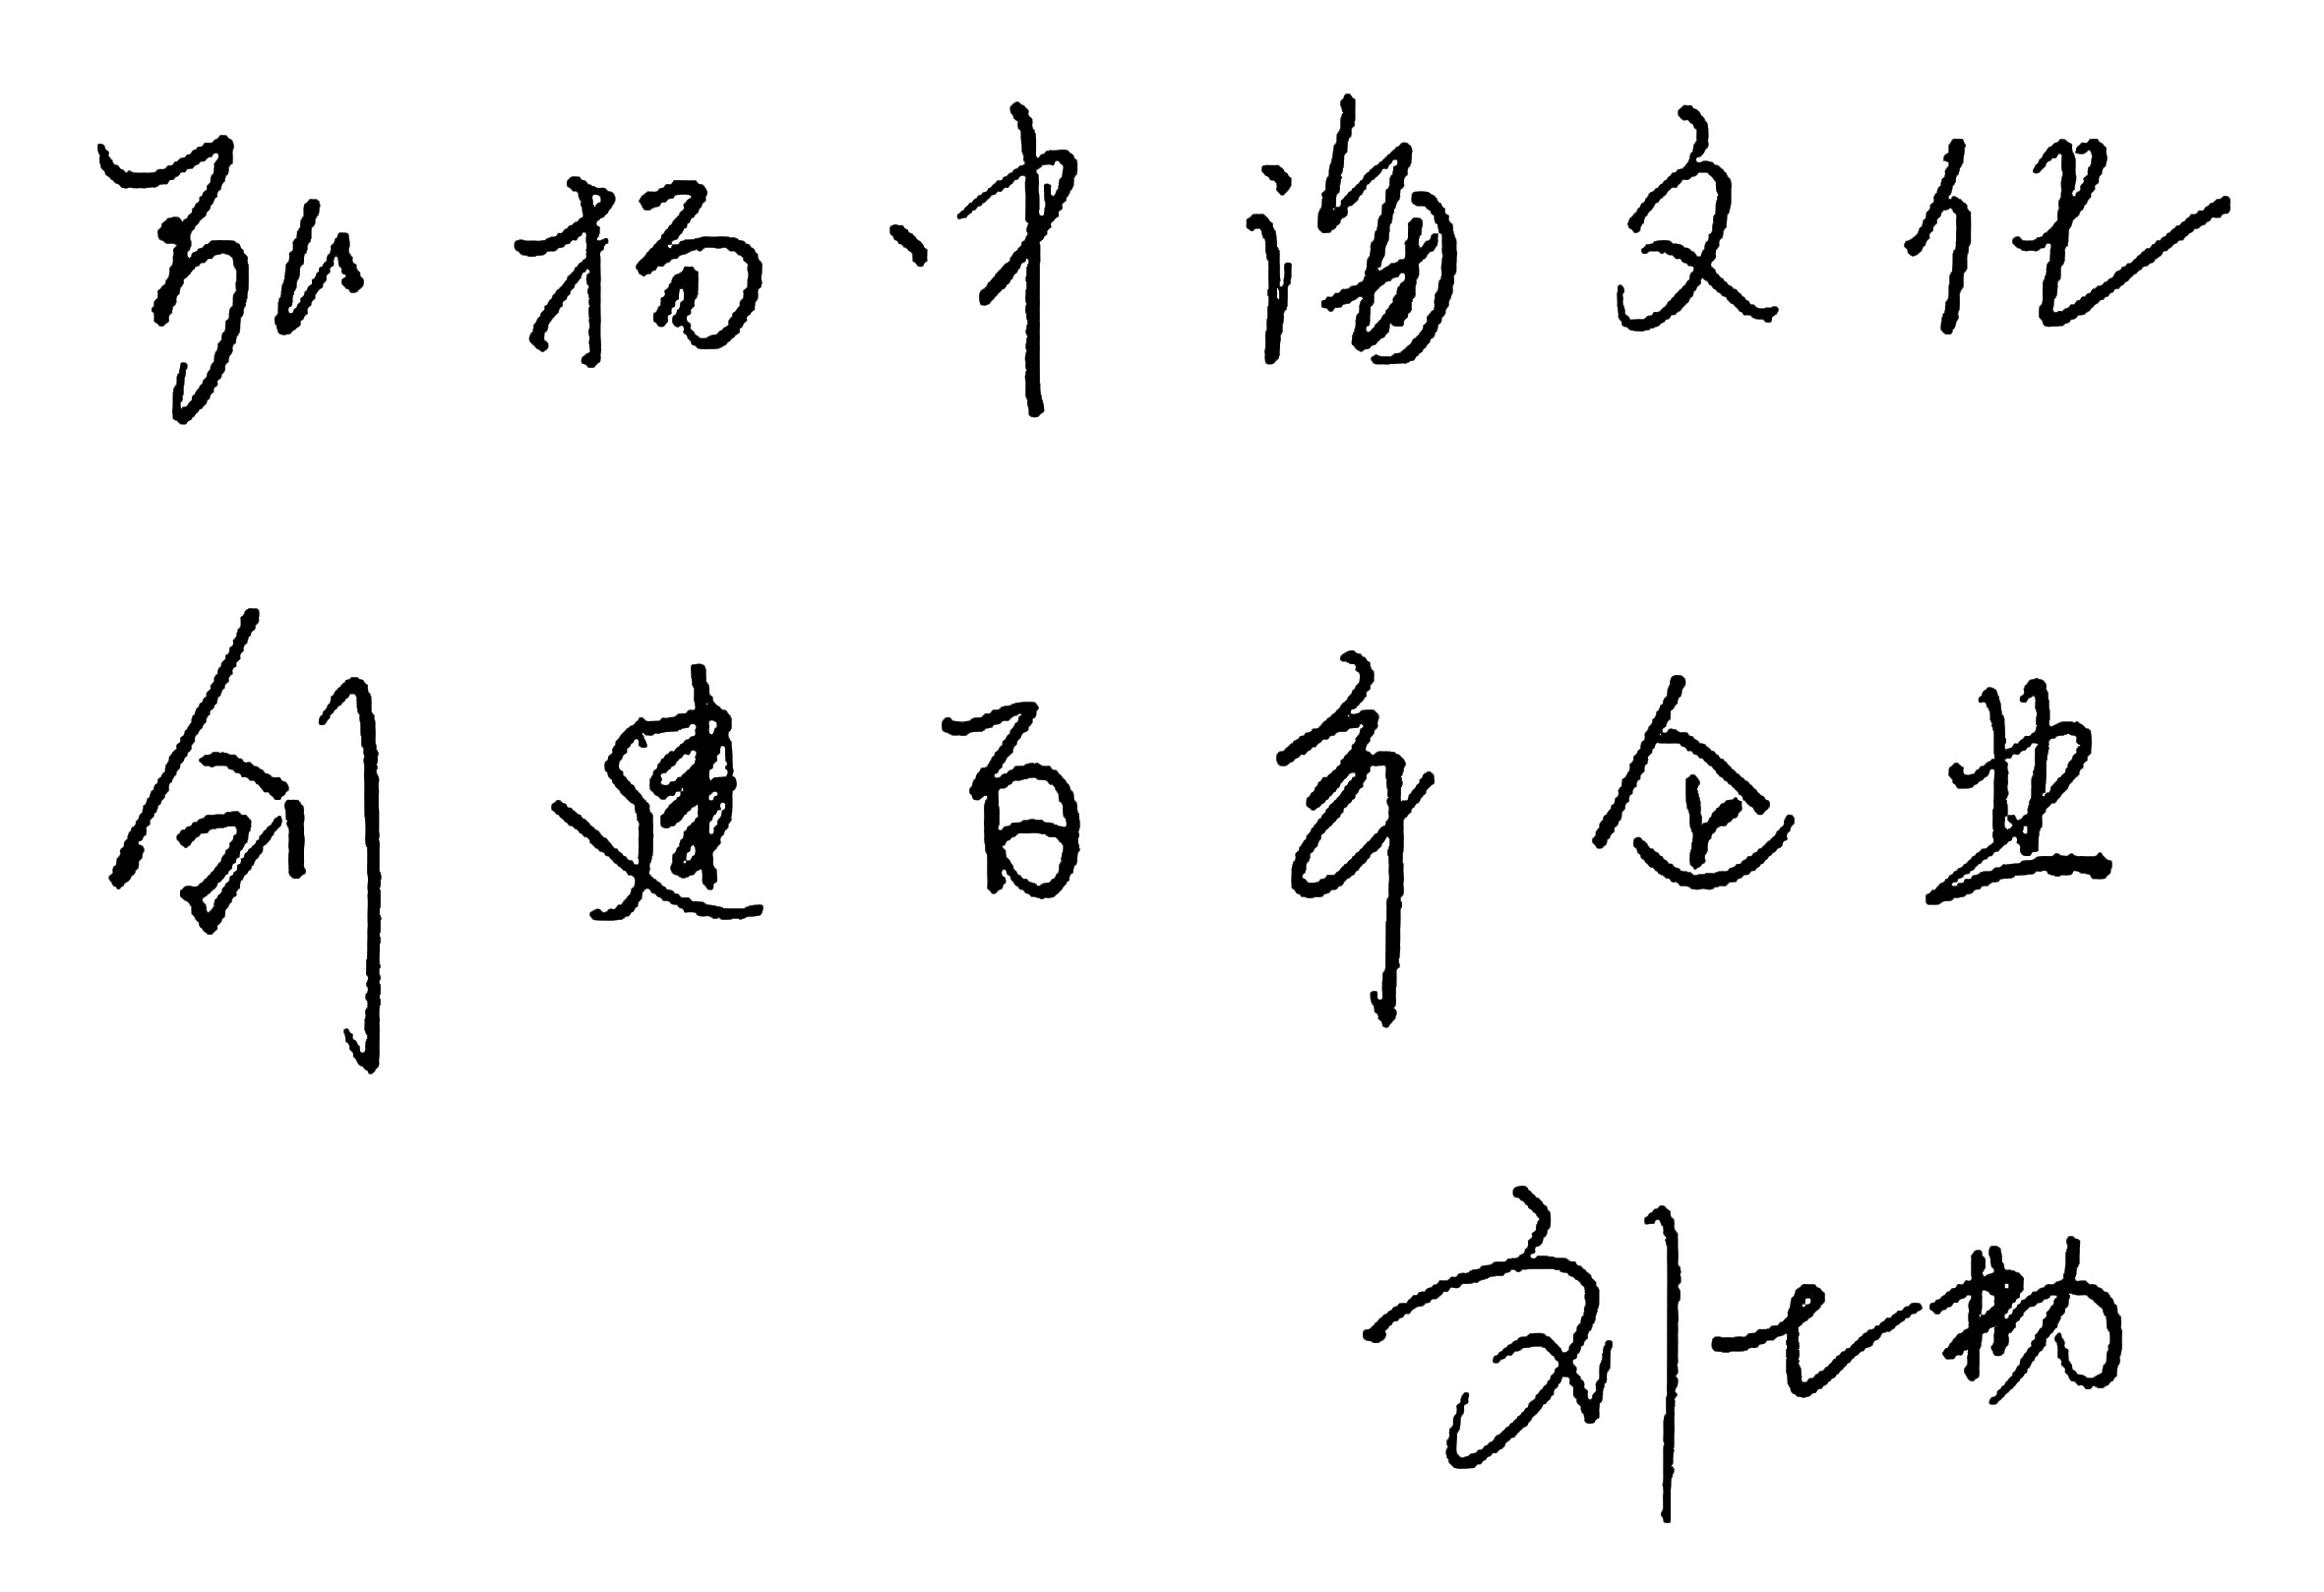 弘扬中海文化
创建百年企业
刘七勤